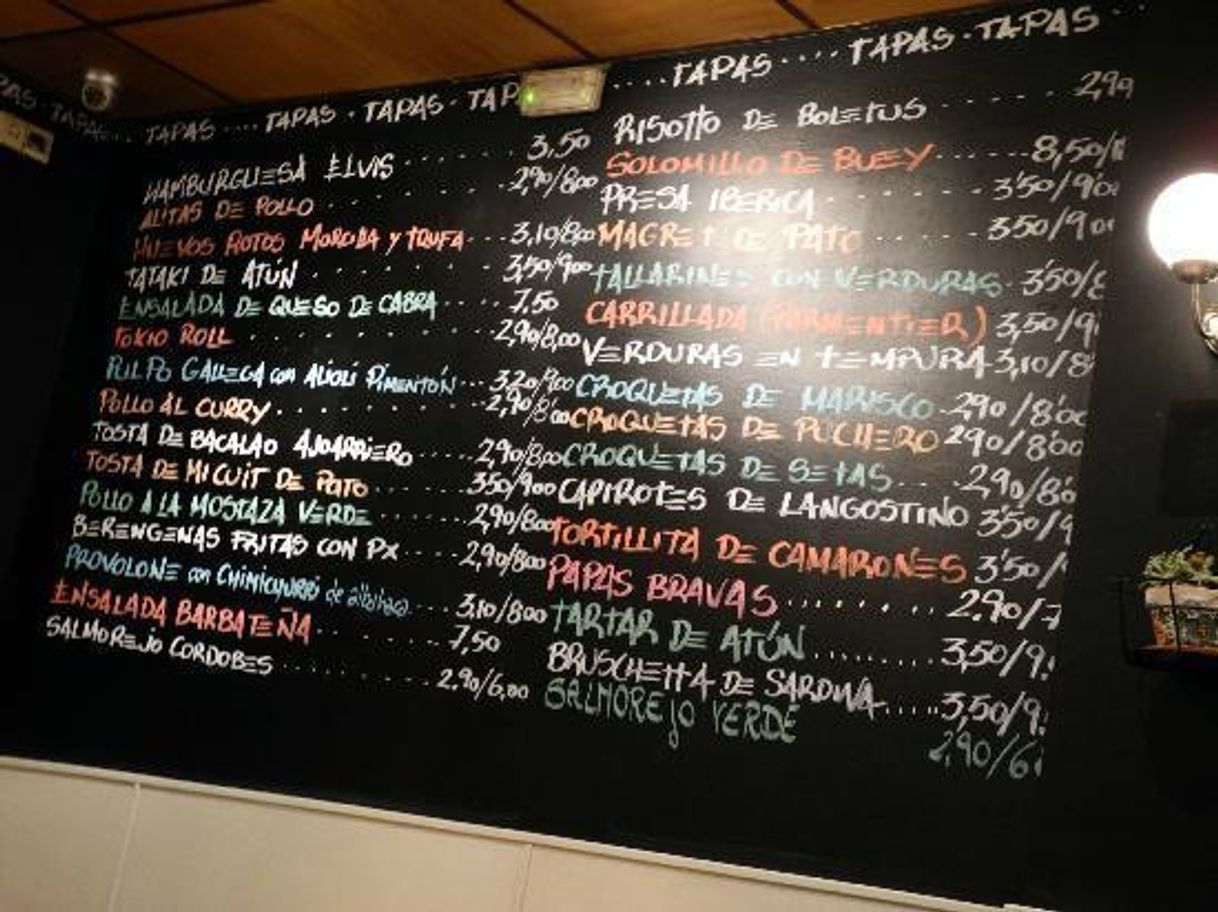 TAPAS.... TAPAS. TAPAS. TAP ....TAPAS.... TAPAS. TAPAS
HAMBURGUESA ELVIS 3,50
ALITAS DE POLLO 2,90/8,00
HUEVOS ROTOS MORCILLA Y TRUFA 3,10/8,00
TATAKI DE ATÚN 3,50/9,00
ENSALADA DE QUESO DE CABRA 7,50
TOKIO ROLL 2,90/8,00
PULPO GALLEGA con ALIOLI PIMENTÓN 3,20/9,00
POLLO AL CURRY 2,90/8,00
TOSTA DE BACALAO AJOARRIERO 2,90/8,00
TOSTA DE MICUIT DE PATO 350/900
POLLO A LA MOSTAZA VERDE 2,90/800
BERENGENAS FRITAS CON PX 2,90/800
PROVOLONE con CHIMICHURRI de albahaca 3,10/800
ENSALADA BARBATEÑA 7,50
SALMOREJO CORDOBES 2.90/6,00
RISOTTO DE BOLETUS 2,90
SOLOMILLO DE BUEY 8,50/1
PRESA IBERICA 3'50/9'00
MAGRET DE PATO 350/900
TALLARINES CON VERDURAS 3'50/8
CARRILLADA (PARMENTIER) 3,50/9
VERDURAS EN TEMPURA 3,10/8
CROQUETAS DE MARISCO 290/8'00
CROQUETAS DE PUCHERO 290/8'00
CROQUETAS DE SETAS 2,90/80
CAPIROTES DE LANGOSTINO 3'50/9
TORTILLITA DE CAMARONES 3'50/
PAPAS BRAVAS 2.90/7
TARTAR DE ATÚN 3,50/9
BRUSCHETTA DE SARDINA 3,50/9
SALMOREJO VERDE 2,90/6